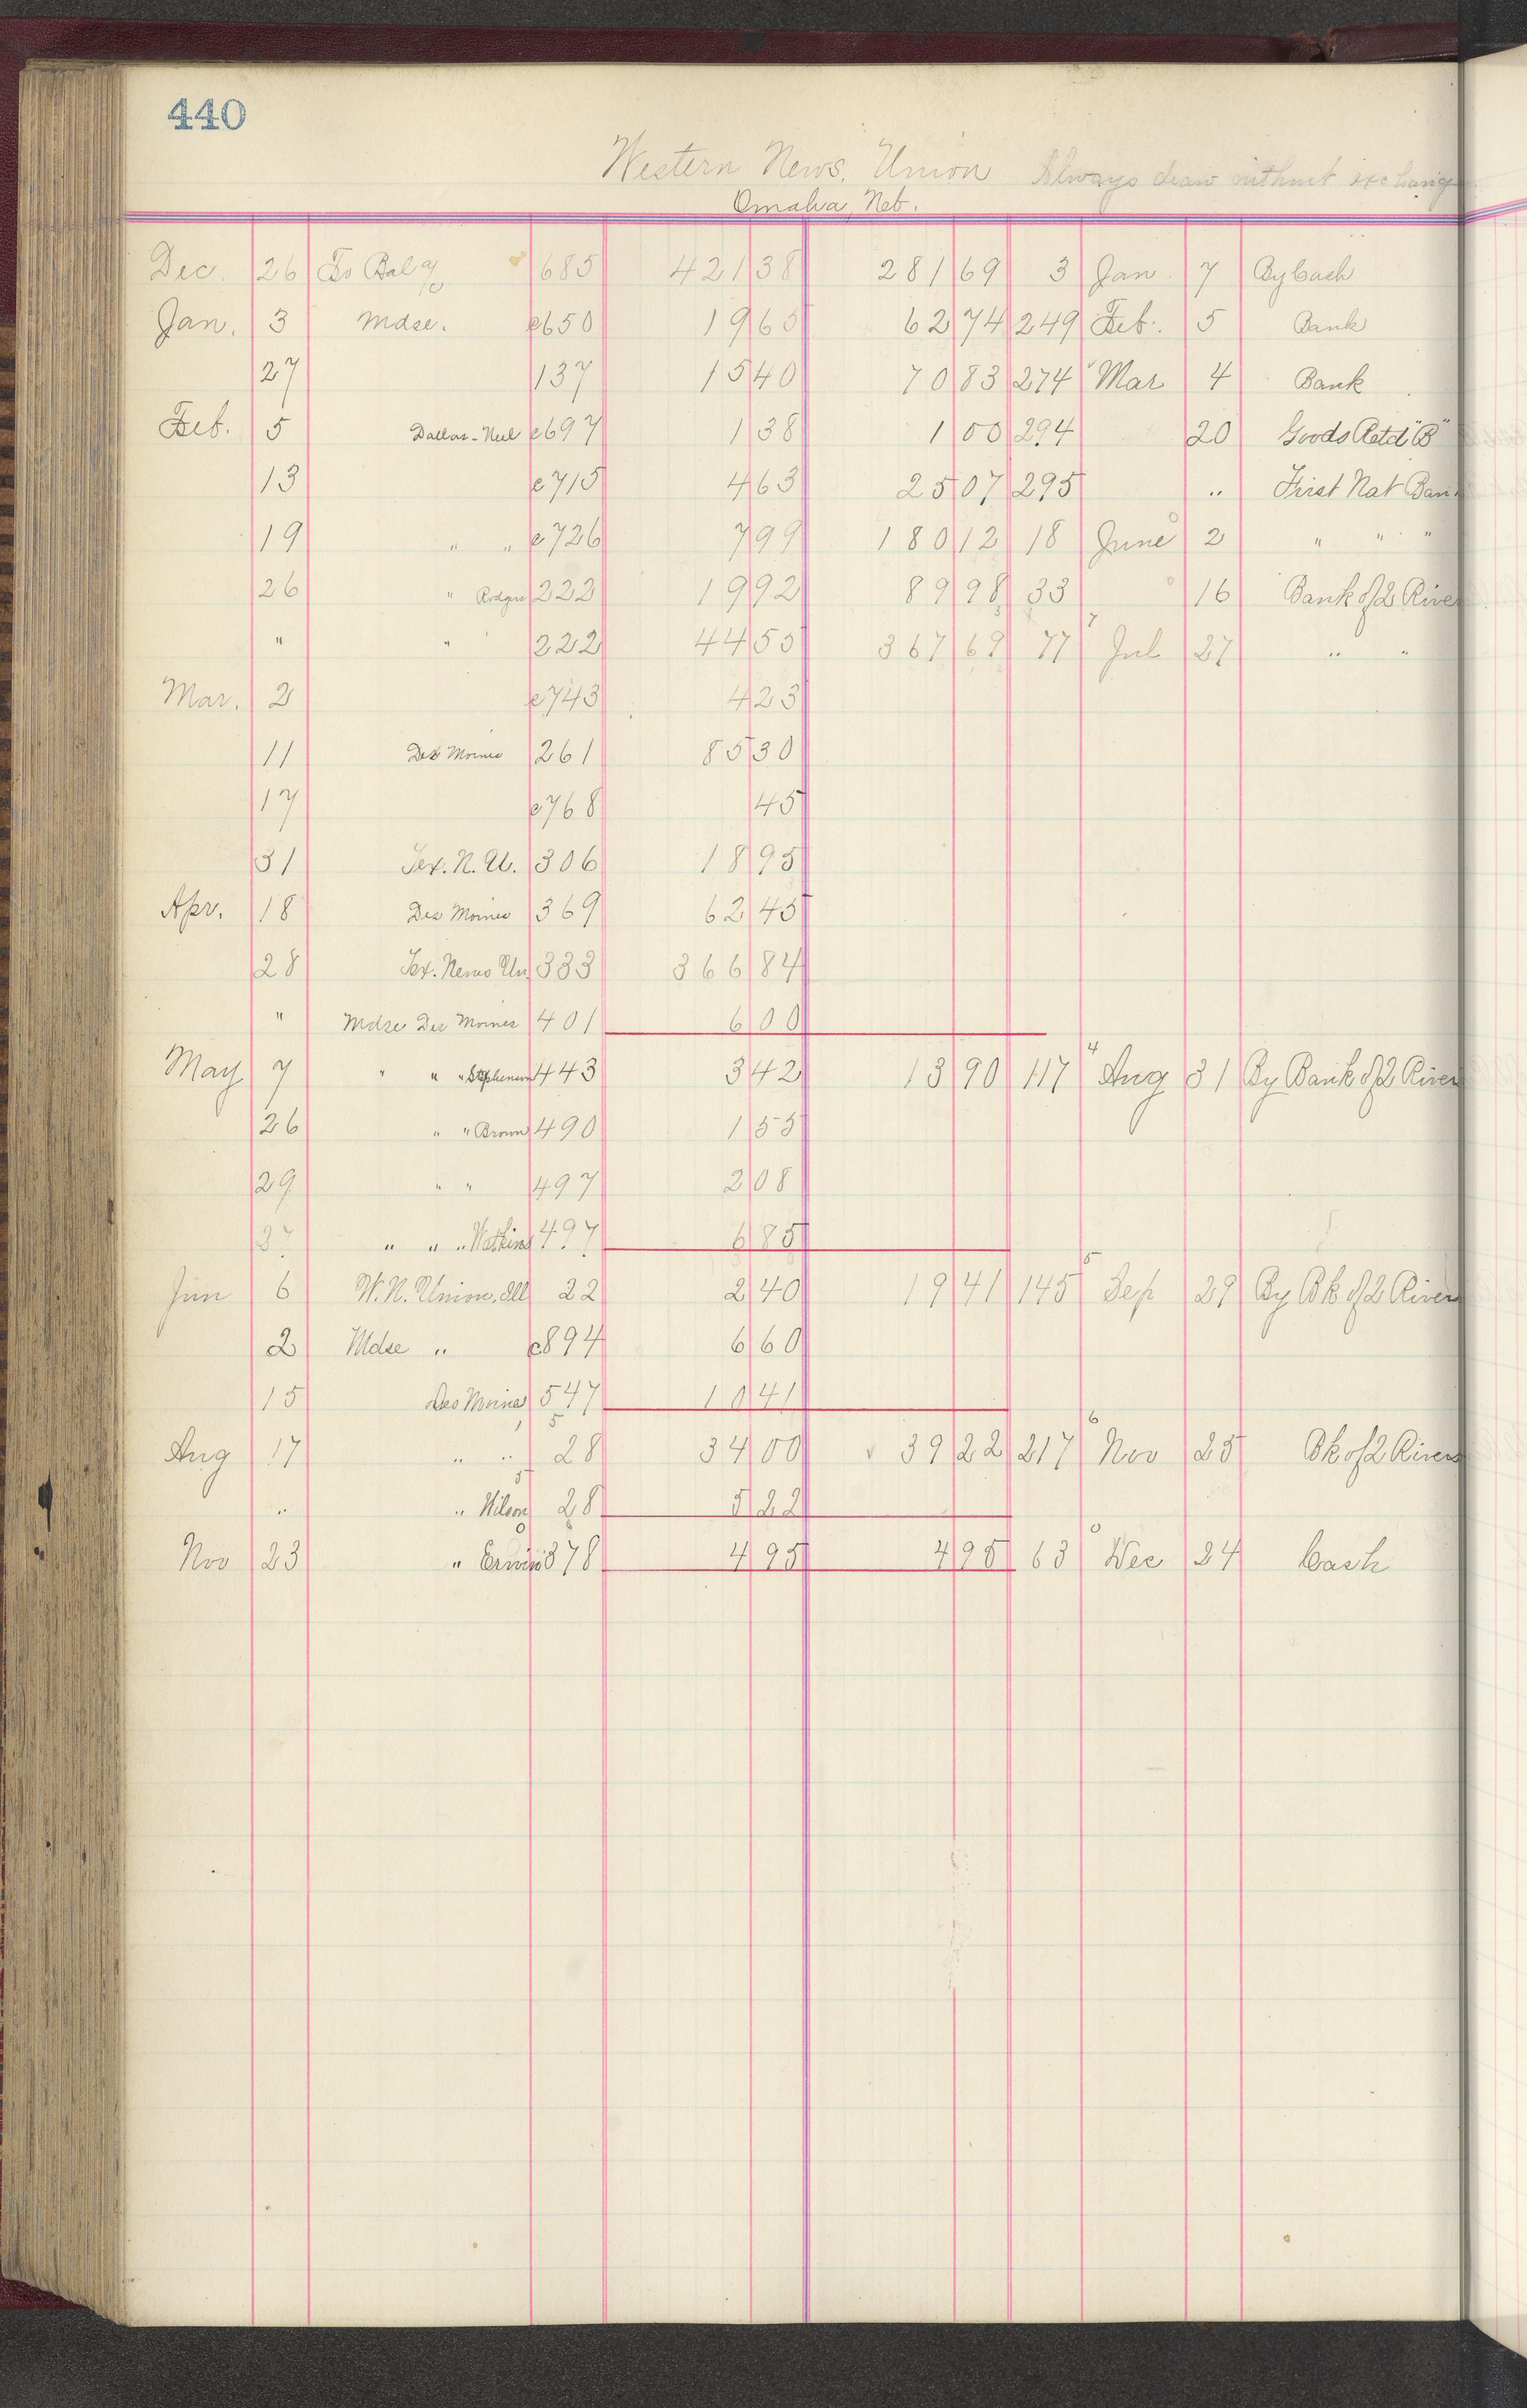 440
Western News. Union Always draw without exchange
Omaha, Neb.
Dec. 26 To Bal a/c 685 421 38 281 69 3 Jan. 7 By Cash
Jan. 3 Mdse. c650 19 65 62 74 249 Feb. 5 Bank
27 137 15 40 70 83 274 Mar 4 Bank
Feb. 5 Dallas-Neel c697 1 38 1 00 294 20 Goods Retd "B"
13 c715 4 63 25 07 295 " First Nat Ban
19 " " c726 7 99 180 12 18 June 2 " " "
26 " Rodgers 222 19 92 89 98 33 16 Bank of 2 River
" " 222 44 55 367 69 77 Jul 27 " "
Mar. 2 c743 4 23
11 Des Moines 261 85 30
17 c768 45
31 Tex. N. U. 306 18 95
Apr. 18 Des Moines 369 62 45
28 Tex. News Un 333 366 84
" Mdse Des Moines 401 6 00
May 7 " " " Stephenson 443 3 42 13 90 117 4 Aug 31 By Bank of 2 River
26 " " Brown 490 1 55
29 " " 497 2 08
" " " Watkins 497 6 85
Jun 6 W. N. Union, 22 2 40 19 41 145 5 Sep 29 By Bk of 2 Rivers
2 Mdse " c894 6 60
15 Des Moines 547 10 41
Aug 17 " " 5 28 34 00 39 22 217 6 Nov 25 Bk of 2 Rivers
" " Wilson 5 28 5 22
Nov 23 " Erwin 378 4 95 4 95 63 Dec 24 Cash